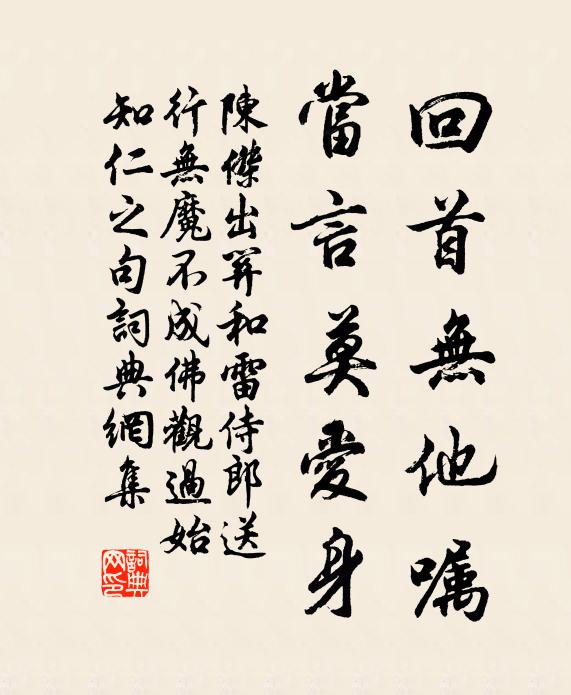 回首無他嘱
當言莫愛身
陳傑出箳和雷侍郎送
行無魔不成佛觀過始
知仁之句詞典網集
詞典网印